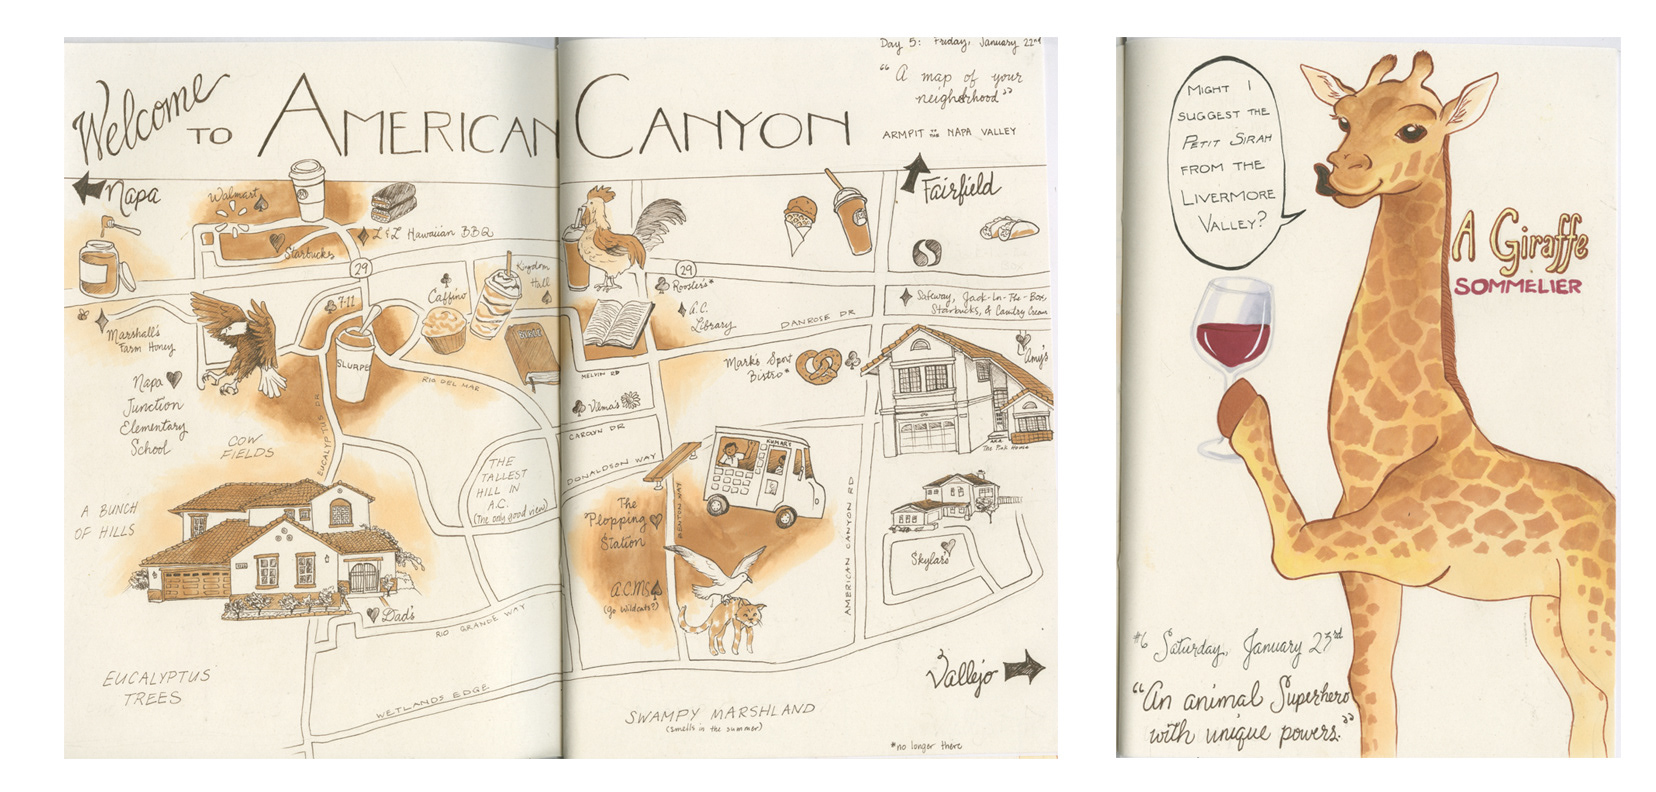 Day 5: Friday, January 22nd
"A map of your
neighorhood"
Welcome
TO AMERICAN CANYON
ARMPIT OF THE NAPA VALLEY
Napa
Fairfield
Walmart
Starbucks
L&L Hawaiian BBQ
29
7-11
SLURPEE
Caffino
Kingdom
Hall
BIBLE
29
Rooster's*
A.C.
Library
DANROSE DR
Safeway, Jack-In-The-Box,
Starbucks, & Country Cream
Marshall's
Farm Honey
Napa
Junction
Elementary
School
RIO DEL MAR
EUCALYPTUS DR
MELVIN RD
Mark's Sport
Bistro*
Amy's
AKA
The Pink House
Vilma's
CAROLYN DR
DONALDSON WAY
COW
FIELDS
A BUNCH
OF HILLS
THE
TALLEST
HILL IN
A.C.
(The only good view)
The
"Plopping
Station"
BENTON WAY
AMERICAN CANYON RD
Skylar's
A.C.M.S
(Go Wildcats?)
Dad's
RIO GRANDE WAY
EUCALYPTUS
TREES
WETLANDS EDGE
Vallejo
SWAMPY MARSHLAND
(smells in the summer)
*no longer there
MIGHT I
SUGGEST THE
PETIT SIRAH
FROM THE
LIVERMORE
VALLEY?
A Giraffe
SOMMELIER
#6 Saturday, January 23rd
"An animal Superhero
with unique powers."